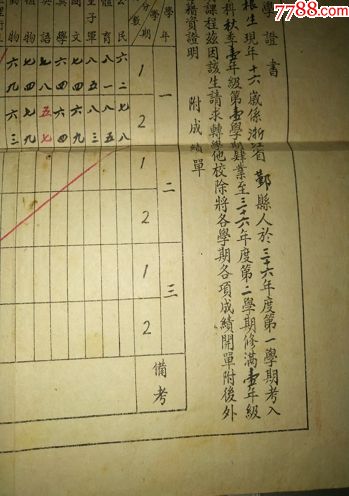 7788.com
學證書
根生現年十六歲係浙江省鄞縣人於三十六年度第一學期考入
科秋季壹年級第壹學期肄業至三十六年度第二學期修滿壹年級
課程茲因該生請求轉學他校除將各學期各項成績開單附後外
籍資證明
附成績單
學年
學期
分數
一
1
2
二
1
2
三
1
2
備考
公民
六二
七八
體育
八一
八五
童子軍
八三
國文
學
六四
英語
五七
植物
七四
七九
動物
六九
六三